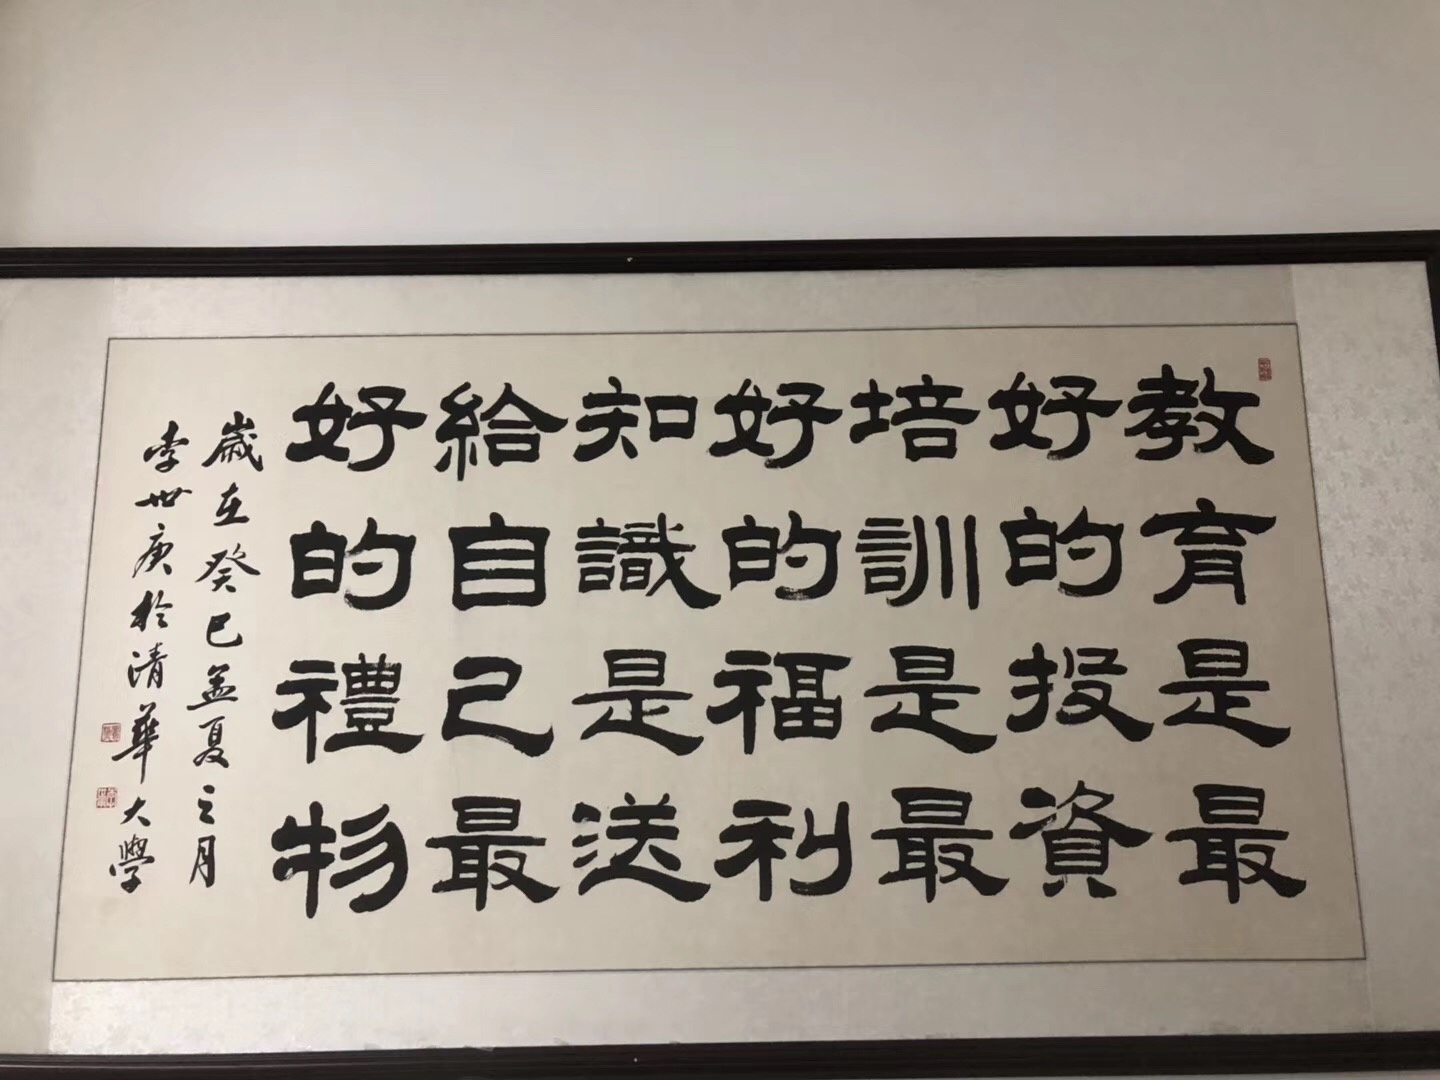 教育是最
好的投資
培訓是最
好的福利
知識是送
給自己最
好的禮物
歲在癸巳孟夏之月
李世庚於清華大學